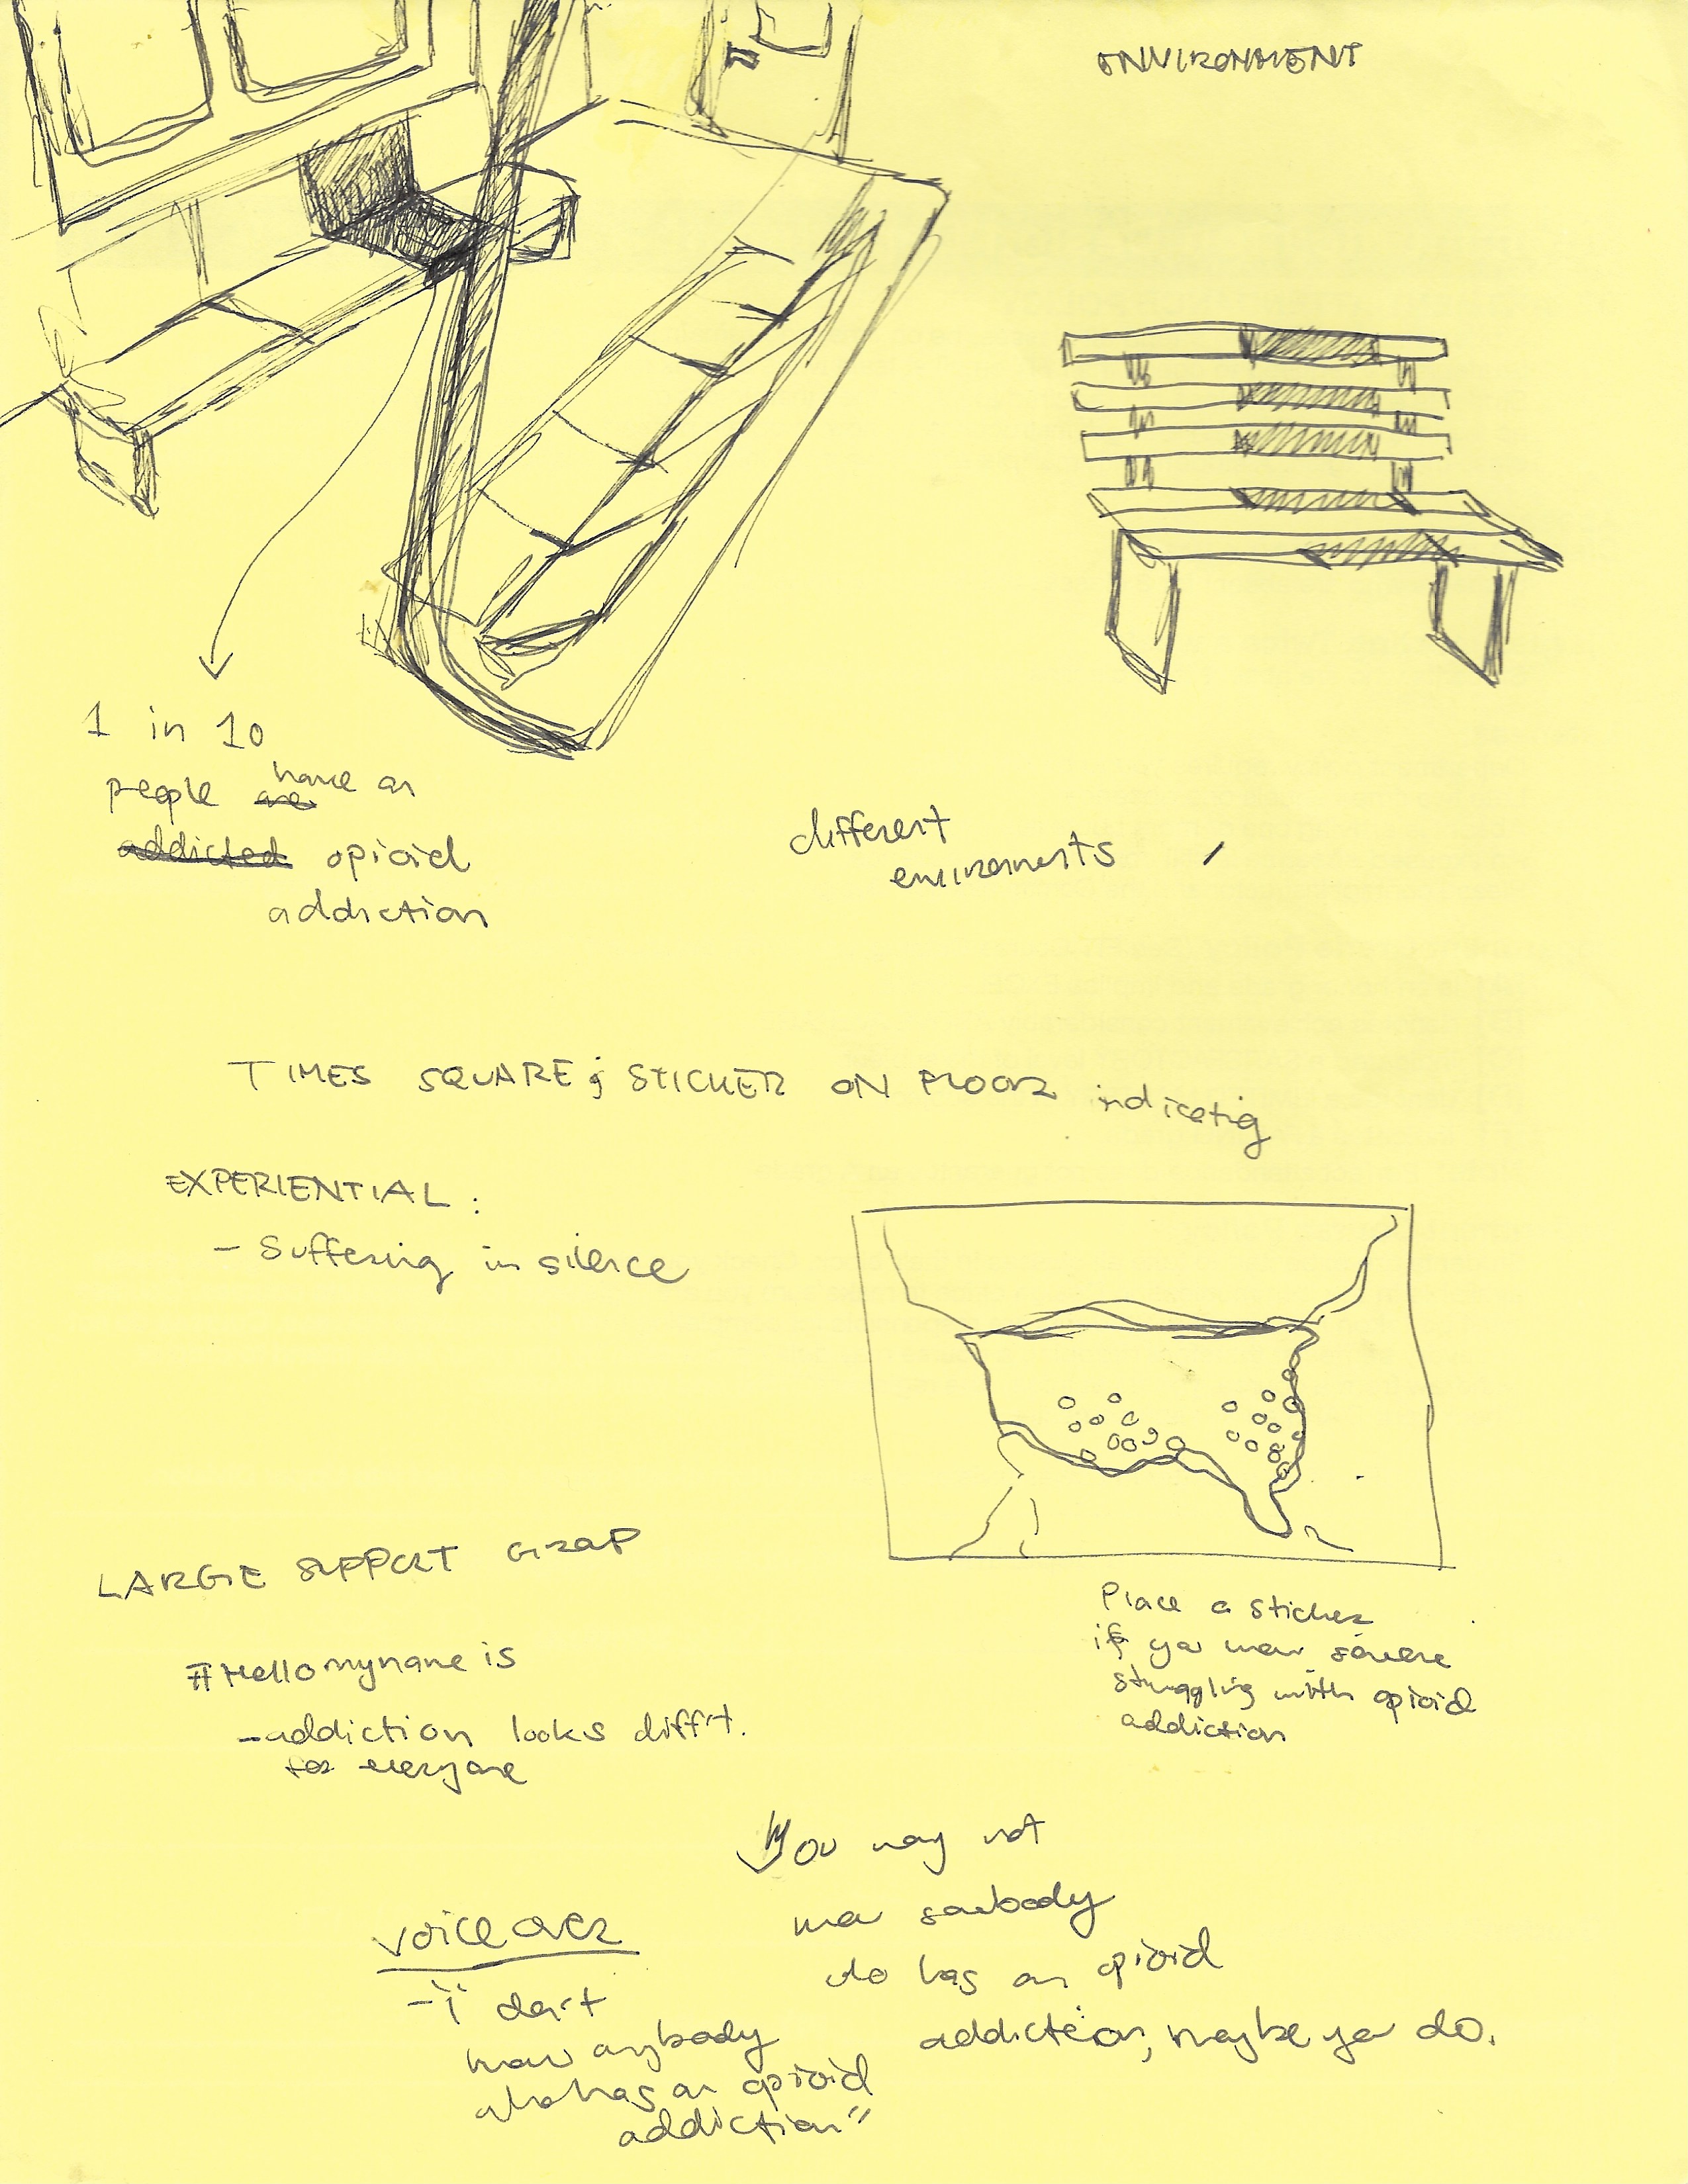 ENVIRONMENT
1 in 10
people are have an
addicted opioid
addiction
different
environments
TIMES SQUARE; STICKER ON FLOOR indicating
EXPERIENTIAL:
- Suffering in silence
LARGE SUPPORT GROUP
#Hellomyname is
- addiction looks diff't.
for everyone
Place a sticker
if you know someone
struggling with opioid
addiction
You may not
know somebody
who has an opioid
addiction, maybe you do.
voice over
- "i don't
know anybody
who has an opioid
addiction"